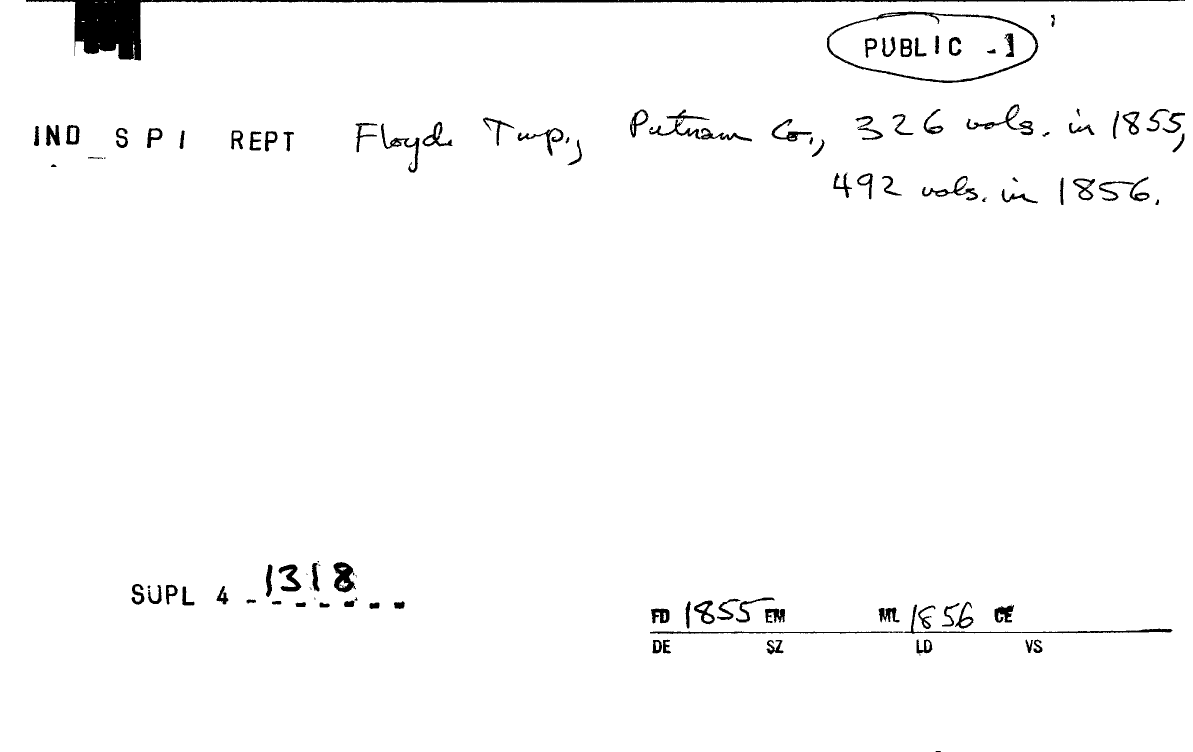 PUBLIC - 1
IND SPI REPT Floyd Twp., Putnam Co., 326 vols. in 1855,
492 vols. in 1856.
SUPL 4 1318
FD 1855 EM ML 1856 CE
DE SZ LD VS